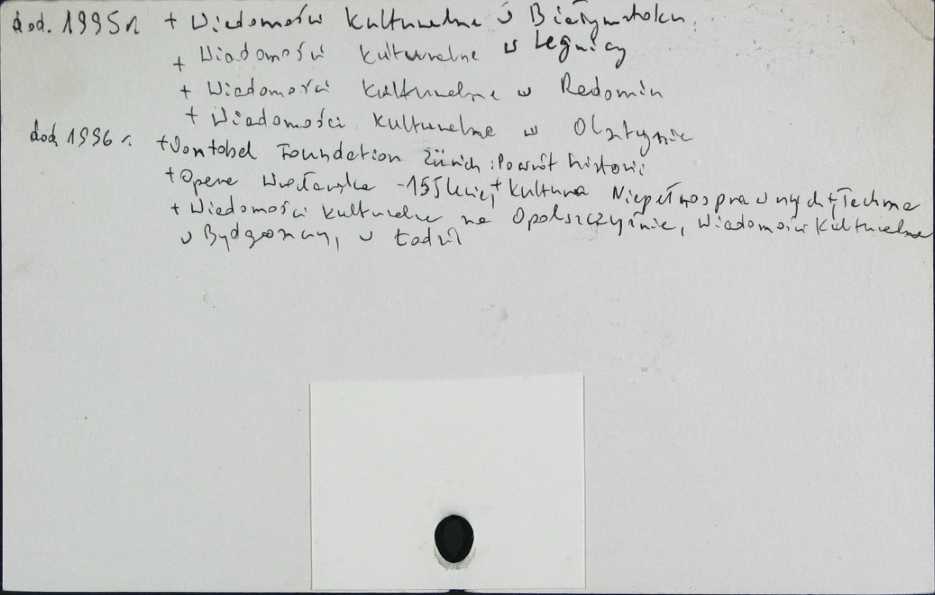 dod. 1995 r. + Wiadomości kulturalne w Białymstoku
+ Wiadomości kulturalne w Legnicy
+ Wiadomości kulturalne w Radomiu
+ Wiadomości kulturalne w Olsztynie
dod. 1996 r. + Vontobel Foundation Zürich: Powrót historii
+ Opera Wrocławska - 155lecie, + Kultura Niepełnosprawnych, + Techma
+ Wiadomości kulturalne na Opolszczyźnie, Wiadomości kulturalne
w Bydgoszczy, w Łodzi